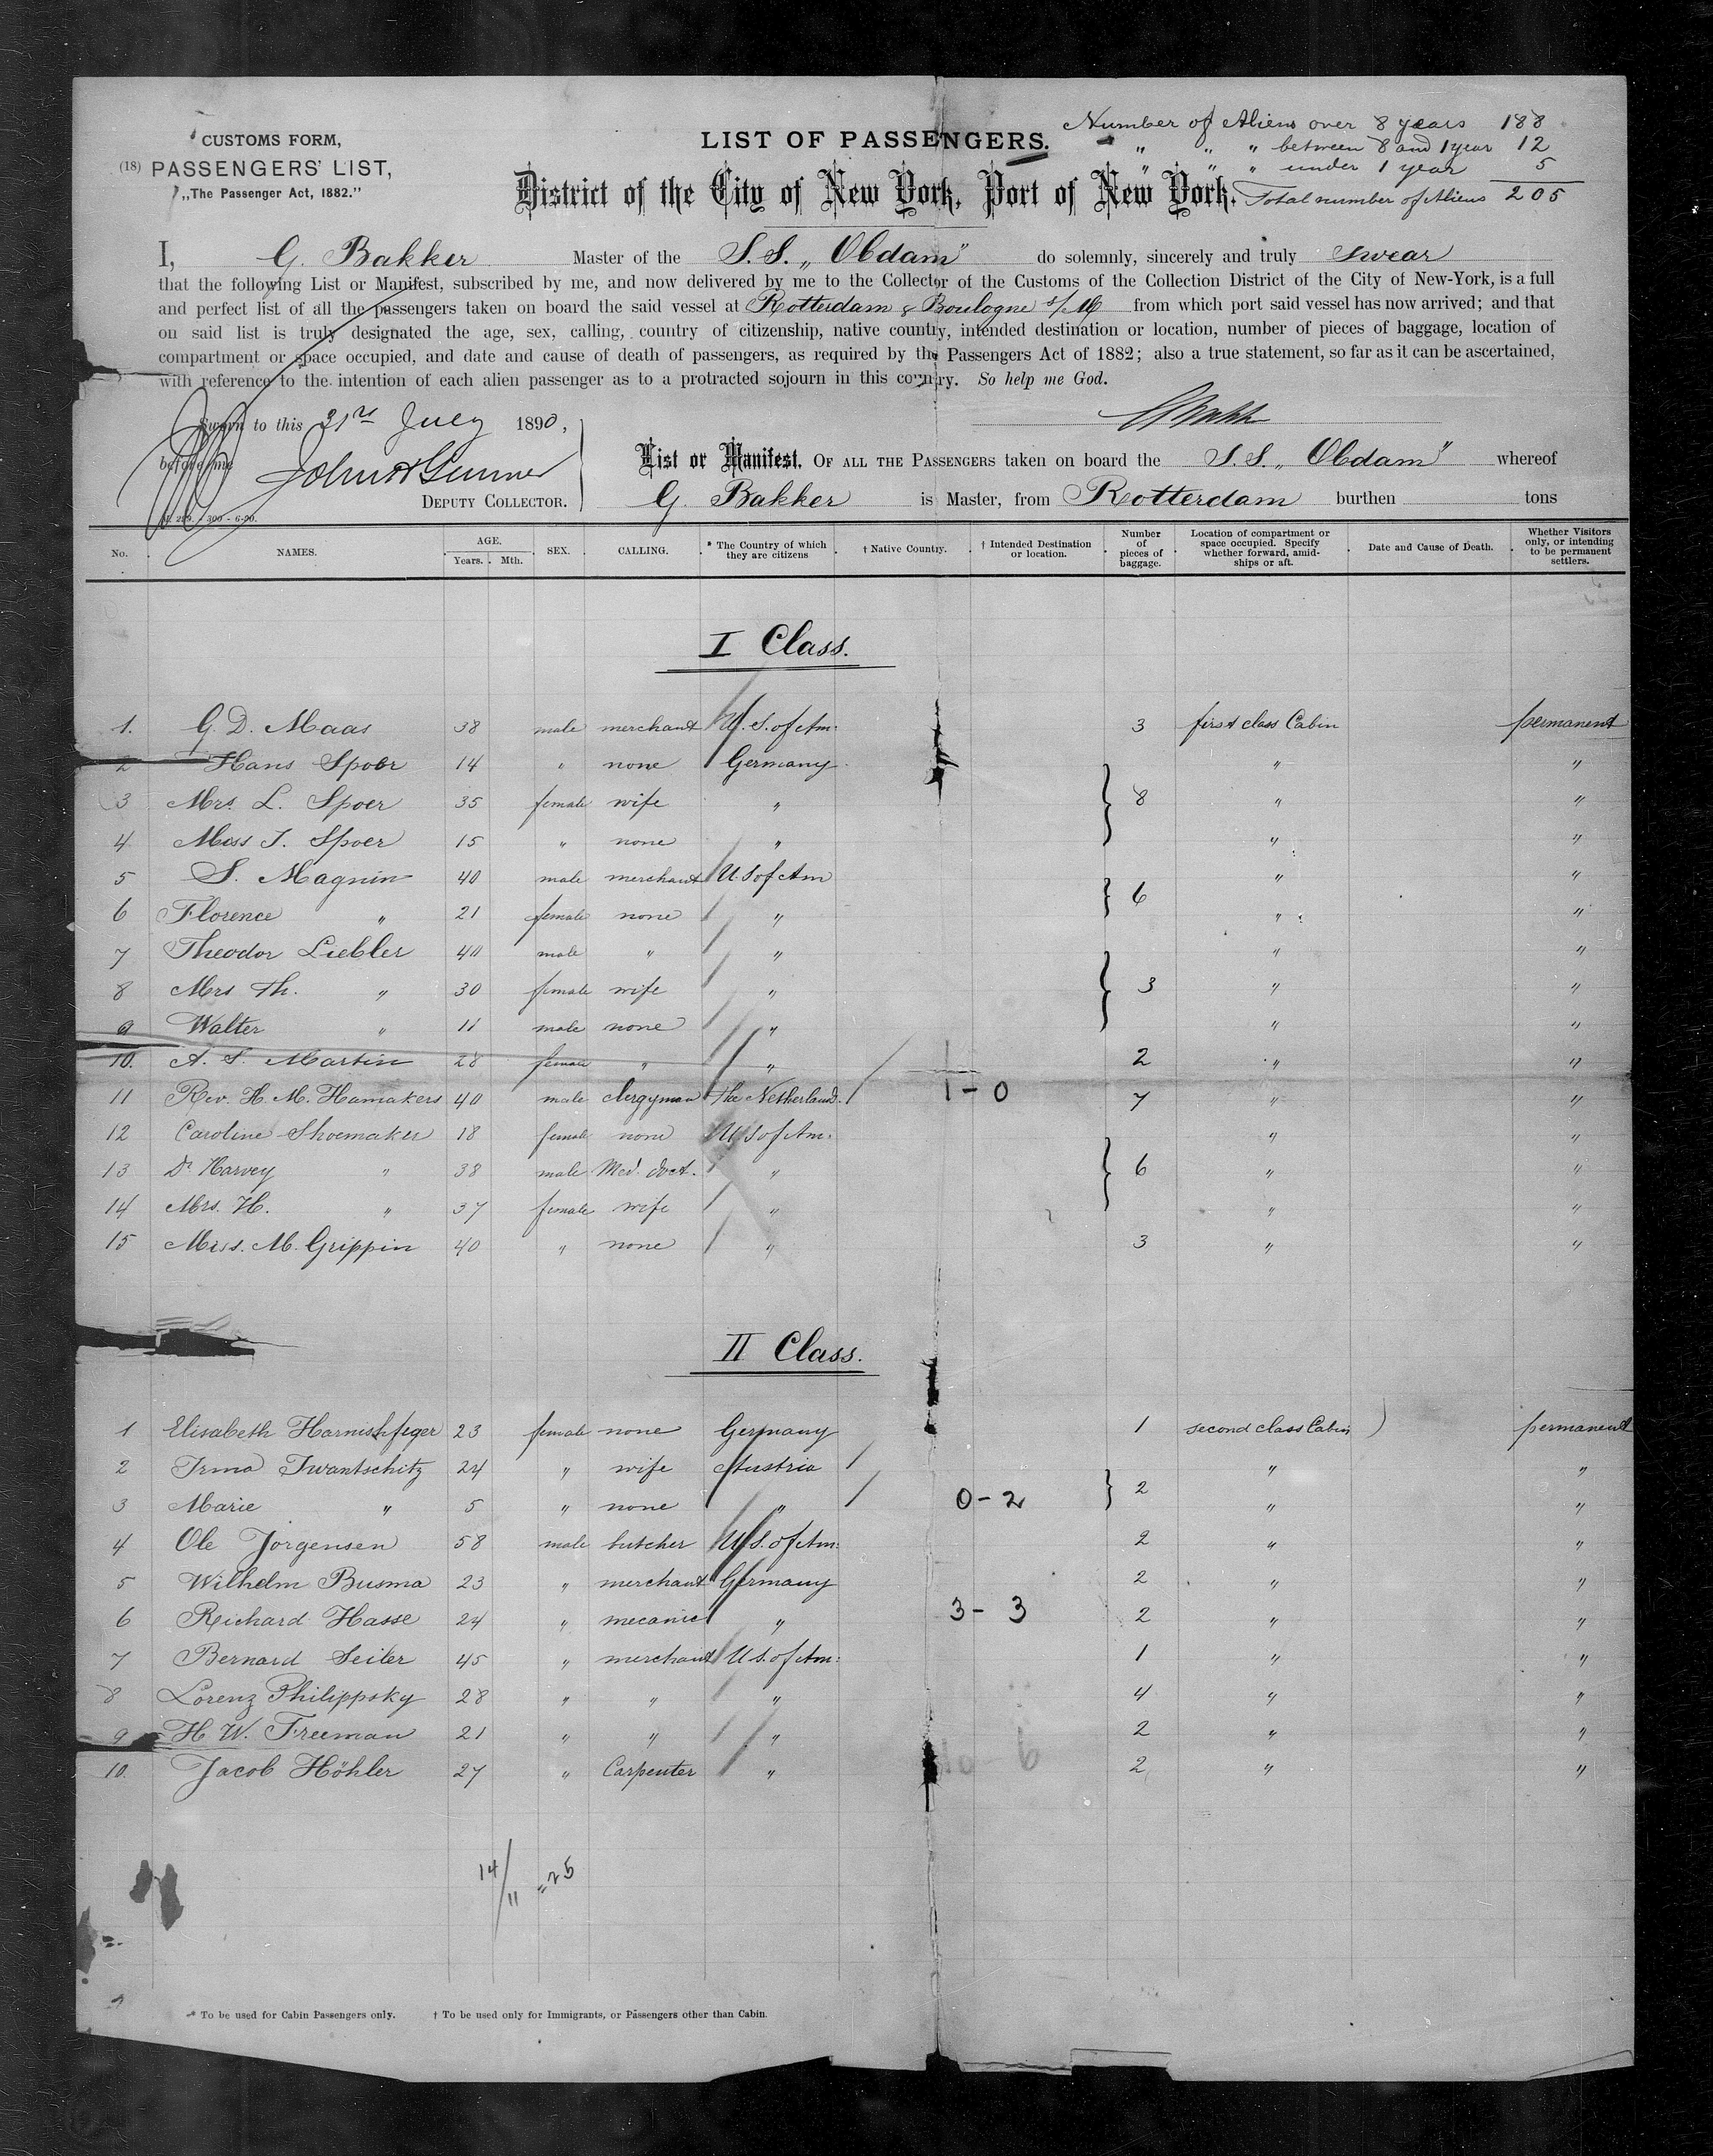 CUSTOMS FORM,
(18) PASSENGERS' LIST,
„The Passenger Act, 1882."
LIST OF PASSENGERS.
Number of Aliens over 8 years 188
" " " between 8 and 1 year 12
" " " under 1 year 5
Total number of Aliens 205
District of the City of New York, Port of New York.
I, G. Bakker Master of the S.S. „Obdam" do solemnly, sincerely and truly swear
that the following List or Manifest, subscribed by me, and now delivered by me to the Collector of the Customs of the Collection District of the City of New-York, is a full
and perfect list of all the passengers taken on board the said vessel at Rotterdam & Boulogne s/M from which port said vessel has now arrived; and that
on said list is truly designated the age, sex, calling, country of citizenship, native country, intended destination or location, number of pieces of baggage, location of
compartment or space occupied, and date and cause of death of passengers, as required by the Passengers Act of 1882; also a true statement, so far as it can be ascertained,
with reference to the intention of each alien passenger as to a protracted sojourn in this country. So help me God.
Sworn to this 31st July 1890,
before me
DEPUTY COLLECTOR.
List or Manifest, OF ALL THE PASSENGERS taken on board the S.S. „Obdam" whereof
G. Bakker is Master, from Rotterdam burthen tons
No. NAMES. AGE. Years. Mth. SEX. CALLING. * The Country of which they are citizens † Native Country. † Intended Destination or location. Number of pieces of baggage. Location of compartment or space occupied. Specify whether forward, amidships or aft. Date and Cause of Death. Whether Visitors only, or intending to be permanent settlers.
I Class.
1. G. D. Maas 38 male merchant U. S. of Am. 3 first class Cabin permanent
2 Hans Spoer 14 " none Germany " "
3 Mrs. L. Spoer 35 female wife " 8 " "
4 Miss J. Spoer 15 " none " " "
5 S. Magnin 40 male merchant U. S of Am " "
6 Florence " 21 female none " 6 " "
7 Theodor Liebler 40 male " " " "
8 Mrs Th. " 30 female wife " 3 " "
9 Walter " 11 male none " " "
10. A. S. Martin 28 female " " 2 " "
11 Rev. H. M. Hamakers 40 male clergyman the Netherland. 1-0 7 " "
12 Caroline Shoemaker 18 female none U S of Am. " "
13 Dr Harvey " 38 male Med. doct. " 6 " "
14 Mrs. H. " 37 female wife " " "
15 Miss. M. Grippin 40 " none " 3 " "
II Class.
1 Elisabeth Harnishfeger 23 female none Germany 1 second class Cabin permanent
2 Irma Iwantschitz 24 " wife Austria " "
3 Marie " 5 " none " 0-2 2 " "
4 Ole Jorgensen 58 male butcher U. S. of Am. 2 " "
5 Wilhelm Busma 23 " merchant Germany 2 " "
6 Richard Hasse 24 " mecanic " 3-3 2 " "
7 Bernard Seiler 45 " merchant U S. of Am. 1 " "
8 Lorenz Philippsky 28 " " " 4 " "
9 H. W. Freeman 21 " " " 2 " "
10. Jacob Höhler 27 " Carpenter " 2 " "
14/11 = 25
* To be used for Cabin Passengers only. † To be used only for Immigrants, or Passengers other than Cabin.